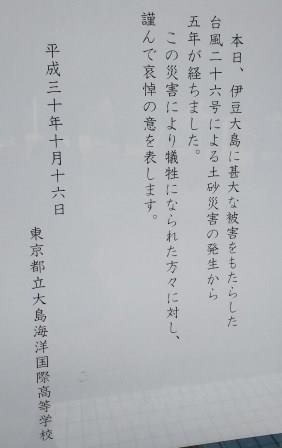 本日、伊豆大島に甚大な被害をもたらした
台風二十六号による土砂災害の発生から
五年が経ちました。
この災害により犠牲になられた方々に対し、
謹んで哀悼の意を表します。
平成三十年十月十六日
東京都立大島海洋国際高等学校